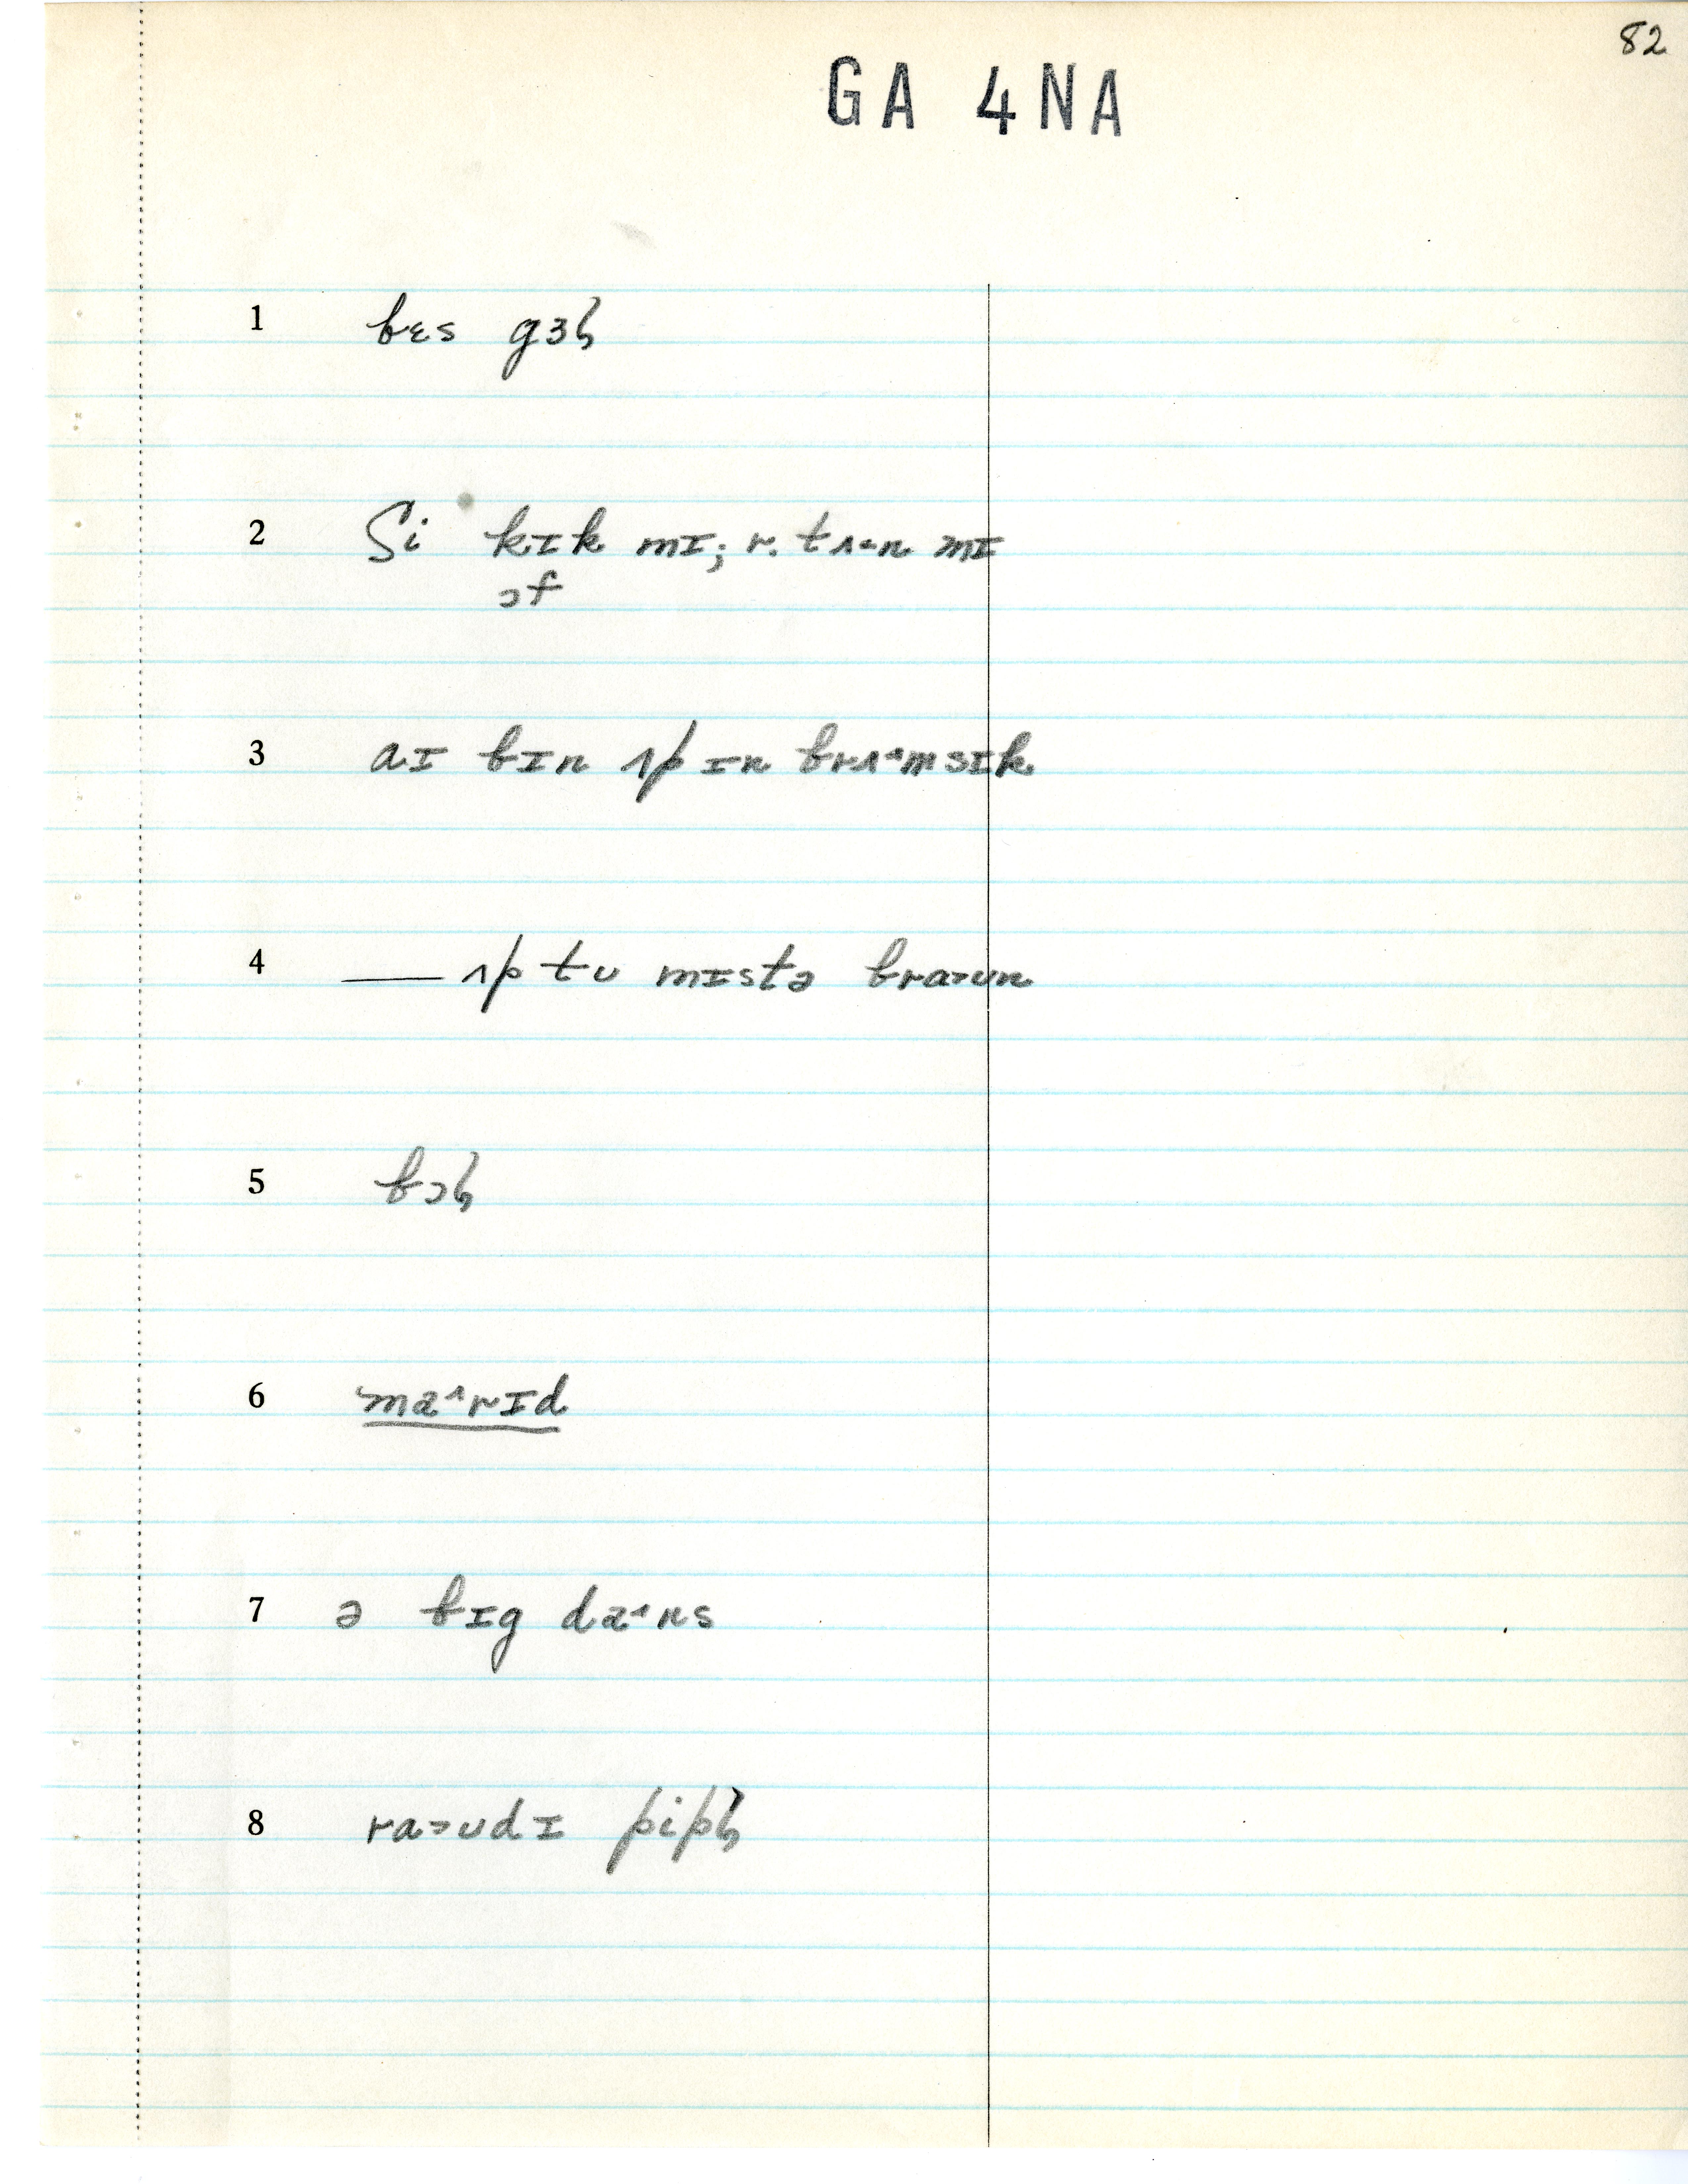 82
GA 4NA
1 bɛs gɜɫ
2 ʃi kɪk mɪ; r. tʌ˔n mɪ
ɔf
3 aɪ bɪn ʌp ɪn brʌ˔msɪk
4 — ʌp tʊ mɪstə bra˃ʊn
5 bɔɫ
6 ma^rɪd
7 ə bɪg da^ns
8 ra˃ʊdɪ pipɫ